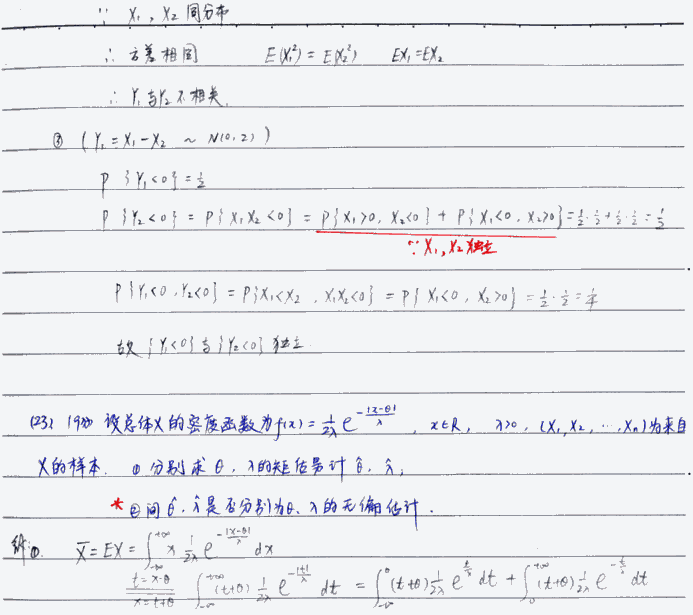 ∵ X₁, X₂ 同分布
∴ 方差相同 E(X₁²) = E(X₂²) EX₁=EX₂
∴ Y₁与Y₂不相关.
③ (Y₁=X₁-X₂ ~ N(0,2))
P{Y₁<0}=1/2
P{Y₂<0} = P{X₁X₂<0} = P{X₁>0, X₂<0} + P{X₁<0, X₂>0} = 1/2·1/2+1/2·1/2 = 1/2
∵ X₁, X₂独立
P{Y₁<0, Y₂<0} = P{X₁<X₂, X₁X₂<0} = P{X₁<0, X₂>0} = 1/2·1/2 = 1/4
故{Y₁<0}与{Y₂<0}独立.
设总体X的密度函数为f(x)=1/(2λ) e^(-|x-θ|/λ), x∈R, λ>0, (X₁,X₂,…,Xₙ)为来自
X的样本. ①分别求θ,λ的矩估计θ̂,λ̂;
* ②问θ̂,λ̂是否分别为θ,λ的无偏估计.
解①. X̄=EX=∫_{-∞}^{+∞} x 1/(2λ) e^(-|x-θ|/λ) dx
t=x-θ x=t+θ ∫_{-∞}^{+∞} (t+θ) 1/(2λ) e^(-|t|/λ) dt = ∫_{-∞}^{0} (t+θ) 1/(2λ) e^(t/λ) dt + ∫_{0}^{+∞} (t+θ) 1/(2λ) e^(-t/λ) dt